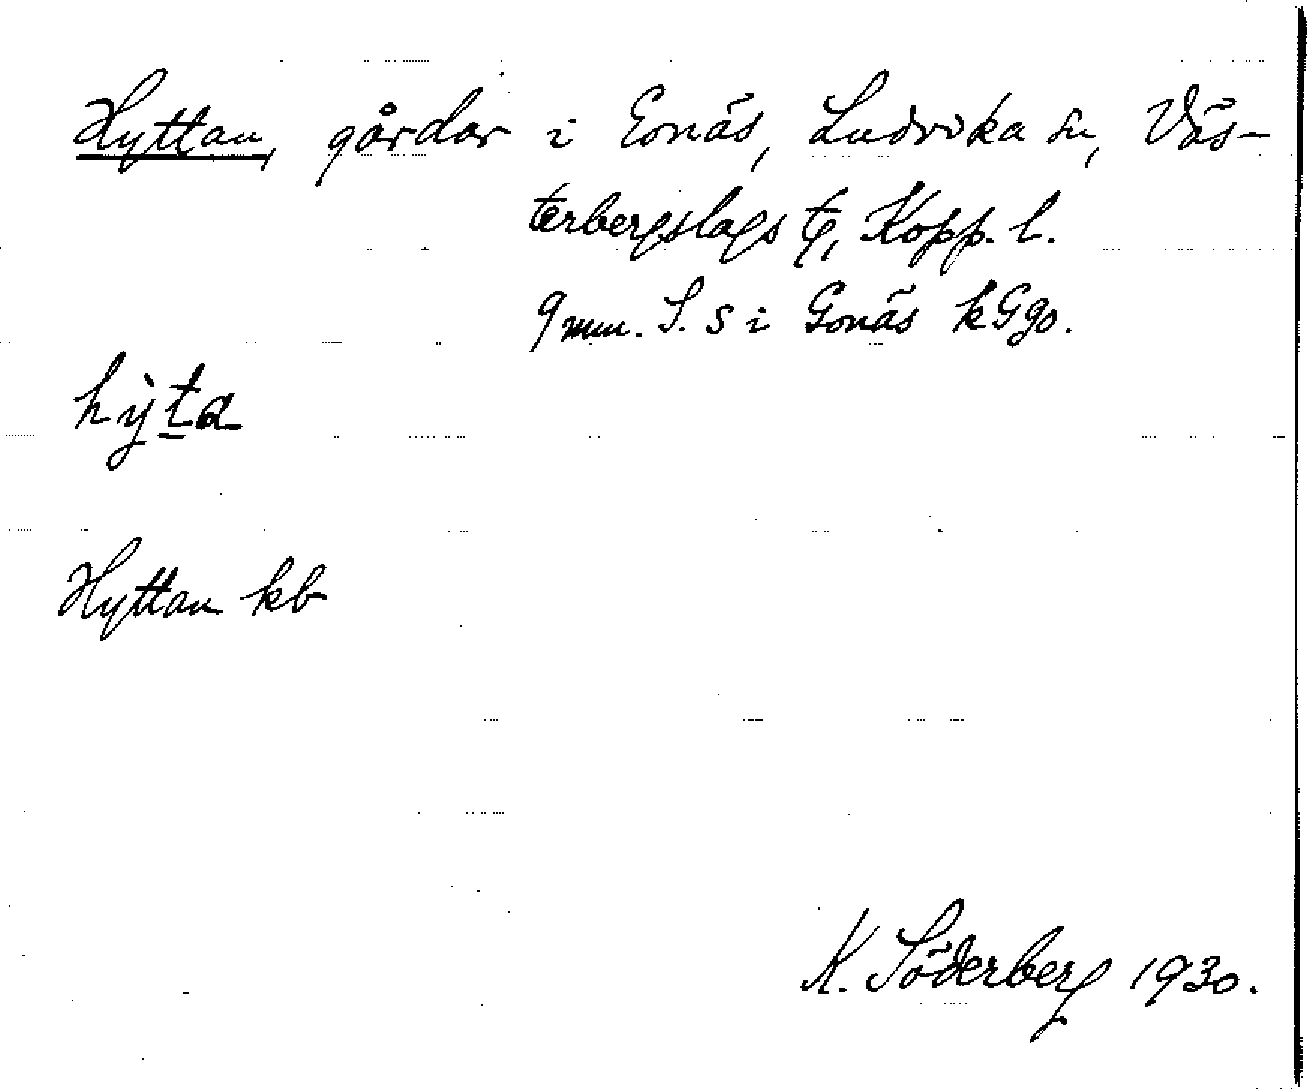 Hyttan, gårdar i Gonäs, Ludvika sn, Väs-
terbergslags tg, Kopp. l.
9 mm. S. s i Gonäs kGgo.
hỳta
Hyttan kb
K. Söderberg 1930.